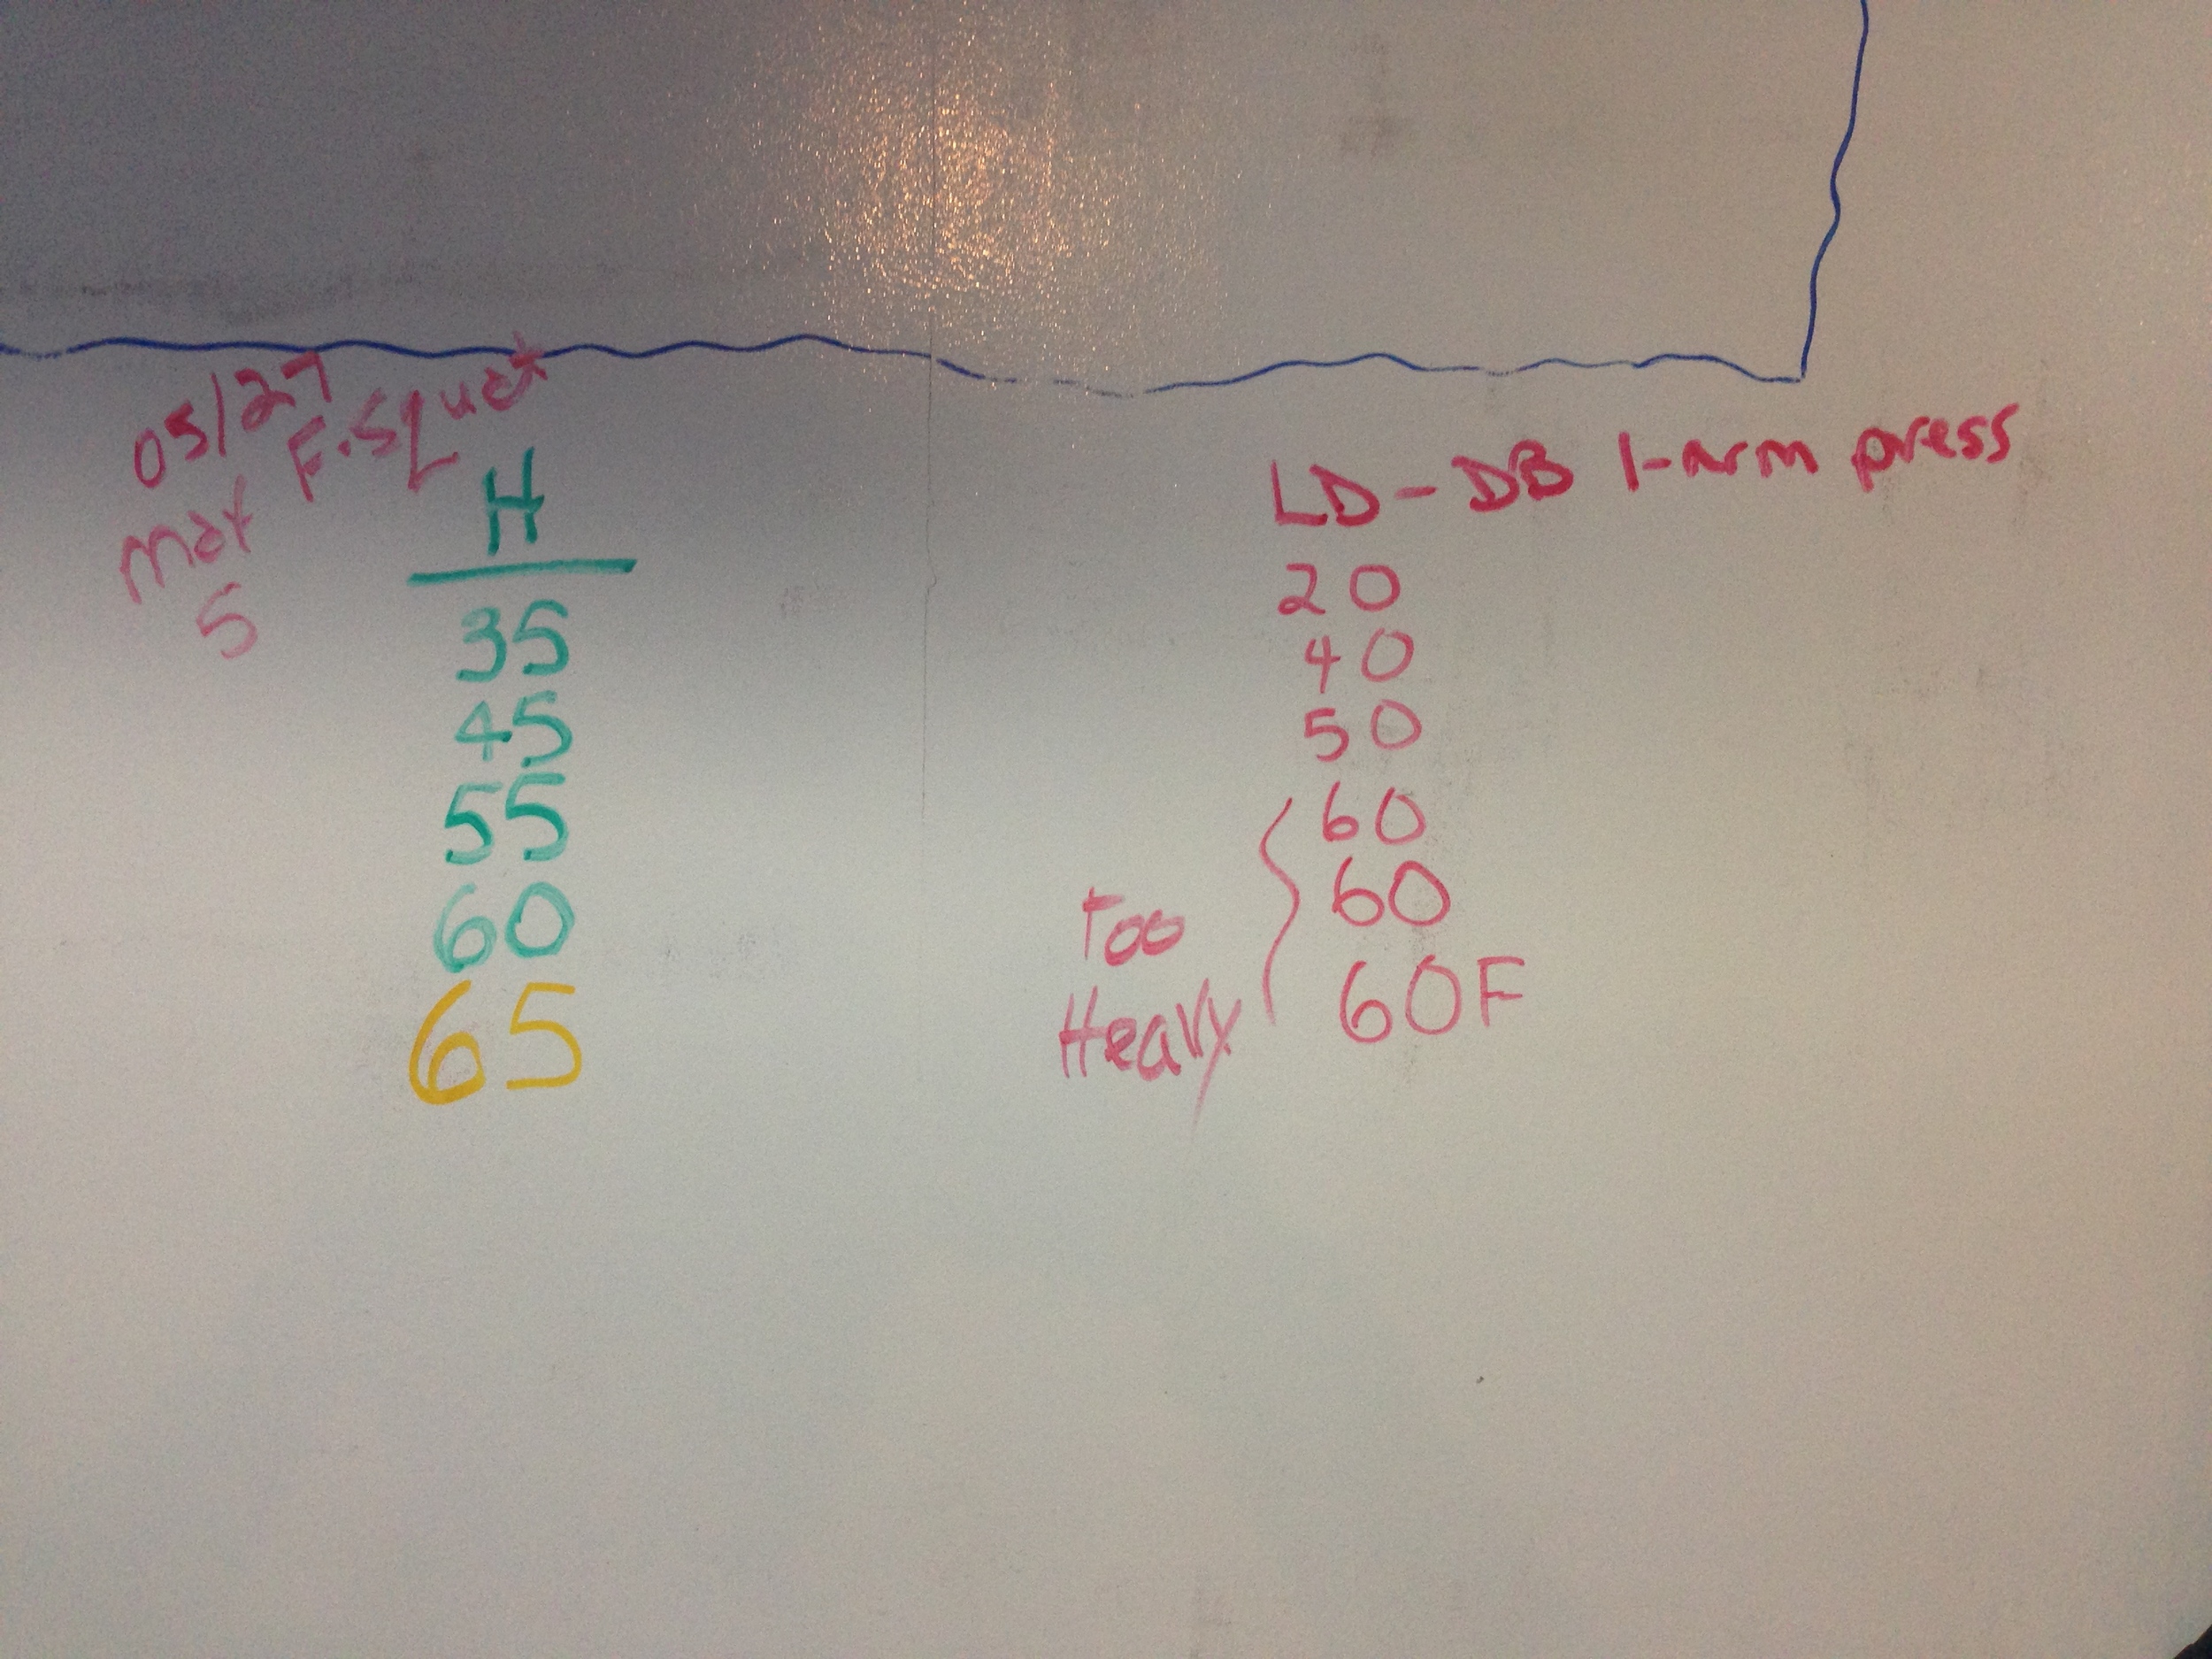 05/27
F.Squat
max
5
H
35
45
55
60
65
LD-DB 1-arm press
20
40
50
60
60
60F
Too
Heavy